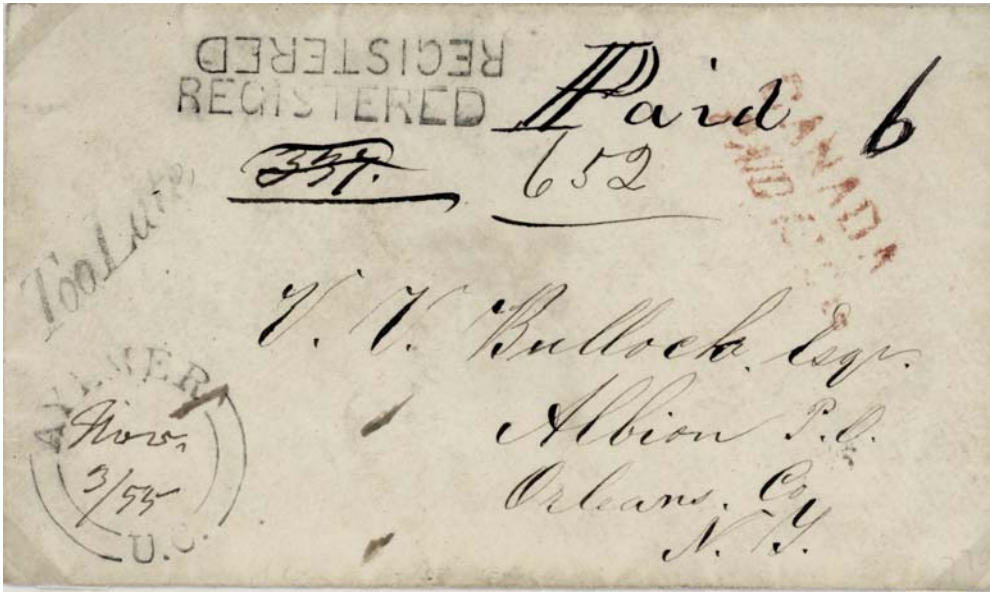 REGISTERED
REGISTERED
Paid 6
652
CANADA
Too Late
V. V. Bullock Esqr.
Albion P.O.
Orleans. Co
N. Y.
AYLMER
Nov.
3/55
U.C.